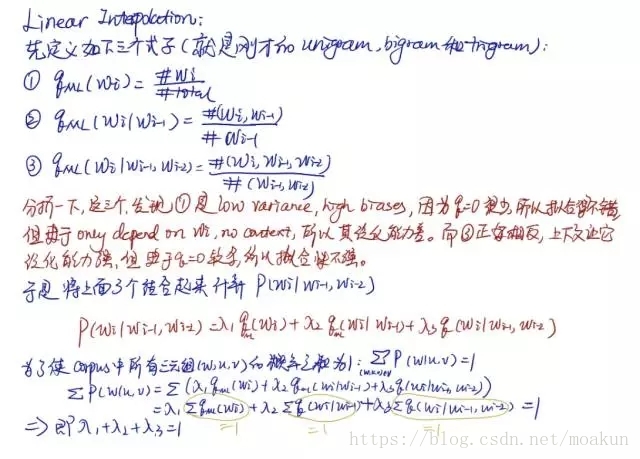 Linear Interpolation:
先定义如下三个式子(就是刚才的 unigram, bigram 和 trigram):
① q_ML(wi) = #wi / #total
② q_ML(wi|wi-1) = #(wi, wi-1) / #wi-1
③ q_ML(wi|wi-1, wi-2) = #(wi, wi-1, wi-2) / #(wi-1, wi-2)
分析一下,这三个,发现,①是low variance, high biases, 因为q=0很少,所以拟合得不错,
但由于 only depend on wi, no context, 所以其泛化能力差。而③正好相反,上下文让它
泛化能力强,但由于q=0较多,所以拟合得不强。
于是将上面3个结合起来计算 P(wi|wi-1, wi-2)
P(wi|wi-1, wi-2) = λ1 q_ML(wi) + λ2 q_ML(wi|wi-1) + λ3 q(wi|wi-1, wi-2)
为了使corpus中所有三元组(w,u,v)的概率之和为1: Σ P(w|u,v)=1
Σ P(w|u,v) = Σ (λ1 q_ML(wi) + λ2 q_ML(wi|wi-1) + λ3 q(wi|wi-1, wi-2))
= λ1 Σ q_ML(wi) + λ2 Σ q(wi|wi-1) + λ3 Σ q(wi|wi-1, wi-2) = 1
=1 =1 =1
⟹ 即 λ1+λ2+λ3=1
https://blog.csdn.net/moakun